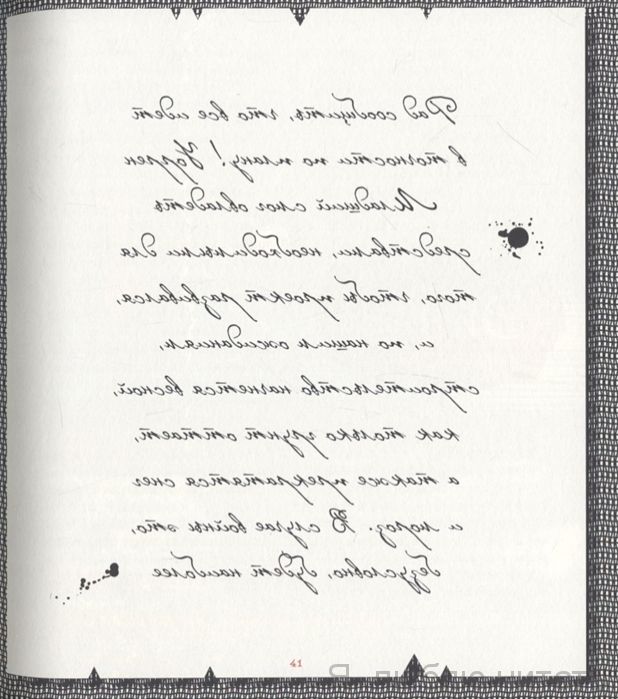 Рад сообщить, что все идет
в точности по плану! Уоррен
Младший смог овладеть
средствами, необходимыми для
того, чтобы проект развивался,
и, по нашим ожиданиям,
строительство начнется весной,
как только грунт оттает,
а также прекратятся снег
и мороз. В случае войны это,
безусловно, будет наиболее
41
Я люблю читать